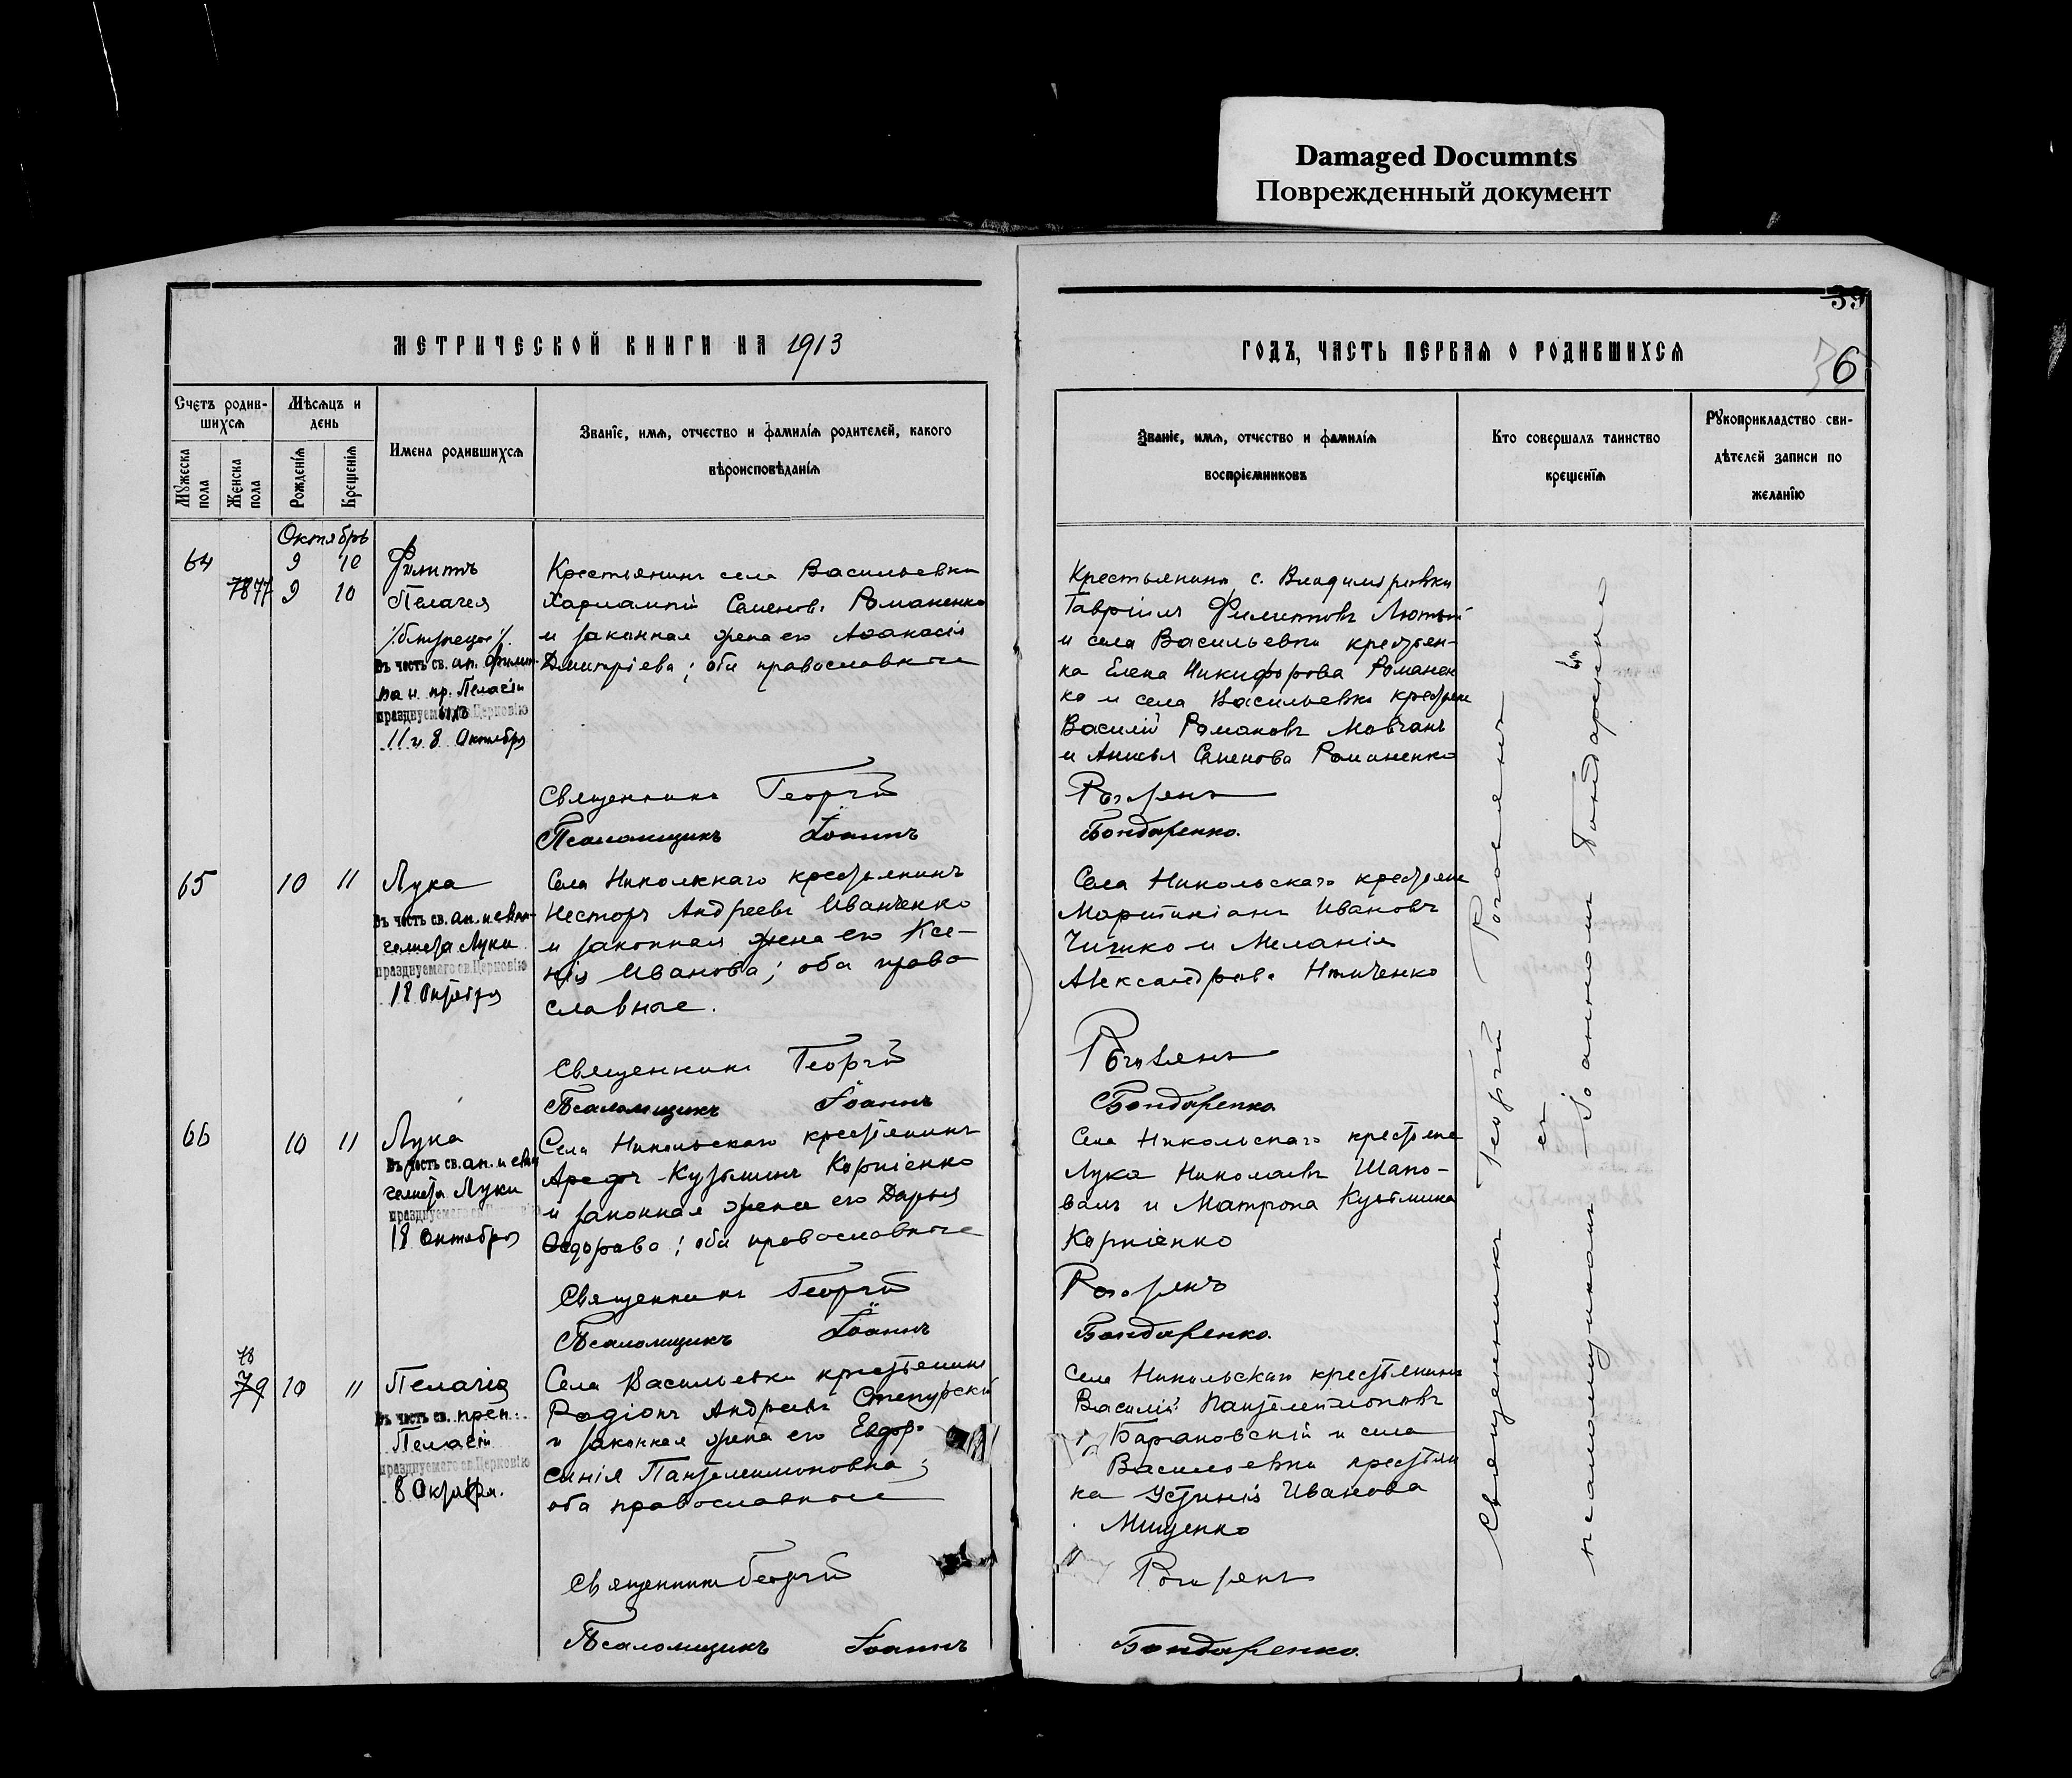 Damaged Documnts
Поврежденный документ
39
МЕТРИЧЕСКОЙ КНИГИ НА 1913
ГОДЪ, ЧАСТЬ ПЕРВАЯ О РОДИВШИХСЯ
6
Счетъ родив-
шихся
Мужеска пола
Женска пола
Мѣсяцъ и
день
Рожденія
Крещенія
Имена родившихся
Званіе, имя, отчество и фамилія родителей, какого
вѣроисповѣданія
Званіе, имя, отчество и фамилія
воспріемниковъ
Кто совершалъ таинство
крещенія
Рукоприкладство сви-
дѣтелей записи по
желанію
Октябрь
64 9 10 Филиппъ
78 77 9 10 Пелагея
Въ честь св. ап. Филип-
па и пр. Пелагіи
празднуемыхъ Церковію
11 и 8 Октября
Крестьянинъ села Васильевки
Харлампій Семеновъ Романенко
и законная жена его Аѳанасія
Димитріева; оба православные
Священникъ Георгій
Псаломщикъ Іоаннъ
Крестьянинъ с. Владиміровки
Гавріилъ Филипповъ Лютый
и села Васильевки крестьян-
ка Елена Никифорова Романен
ко и села Васильевки крестьяне
Василій Романовъ Мовчанъ
и Анисья Семенова Романенко
Рогозянъ
Бондаренко.
65 10 11 Лука
Въ честь св. ап. и еван-
гелиста Луки
празднуемаго св. Церковію
18 Октября
Села Николскаго крестьянинъ
Несторъ Андреевъ Иванченко
и законная жена его Ксе-
нія Иванова; оба право
славные.
Священникъ Георгій
Псаломщикъ Іоаннъ
Села Никольскаго крестьяне
Мартиніанъ Ивановъ
Чишко и Меланія
Александрова
Рогозянъ
Бондаренко
66 10 11 Лука
Въ честь св. ап. и еван
гелиста Луки
празднуемаго св. Церковію
18 Октября
Села Никольскаго крестьянинъ
Арефъ Кузьминъ Корніенко
и законная жена его Дарья
Ѳедорова; оба православные
Священникъ Георгій
Псаломщикъ Іоаннъ
Села Никольскаго крестьяне
Лука Николаевъ Шапо-
валъ и Матрона Кузьмина
Корніенко
Рогозянъ
Бондаренко.
78
79 10 11 Пелагія
Въ честь св. преп.
Пелагіи
празднуемаго св. Церковію
8 Октября.
Села Васильевки крестьянинъ
Родіонъ Андреевъ Степурскій
и законная жена его Евфро
синія Пантелеимоновна;
оба православные
Священникъ Георгій
Псаломщикъ Іоаннъ
Села Никольскаго крестьянинъ
Василій Пантелеимоновъ
Барановскій и села
Васильевки крестьян
ка Устинія Иванова
Мищенко
Рогозянъ
Бондаренко.
Священникъ Георгій Рогозянъ
съ
псаломщикомъ Іоанномъ Бондаренко